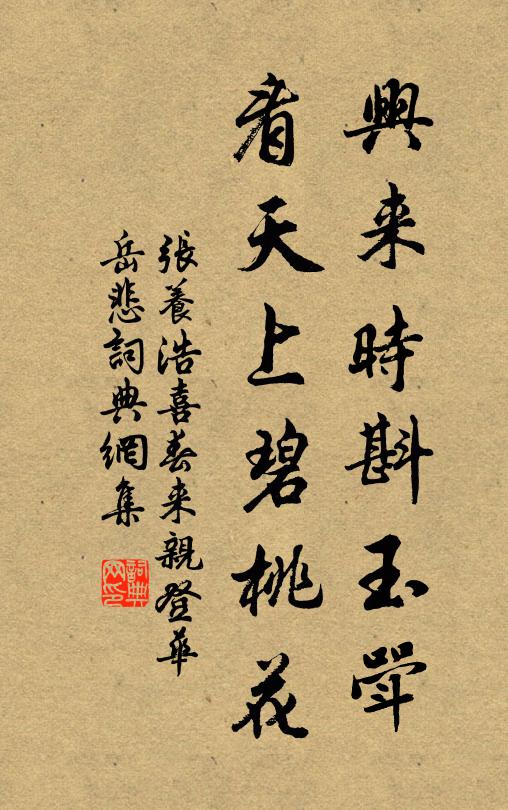 興来時斟玉斝
看天上碧桃花
張養浩喜春来親登華
岳悲詞典網集
詞典
网印